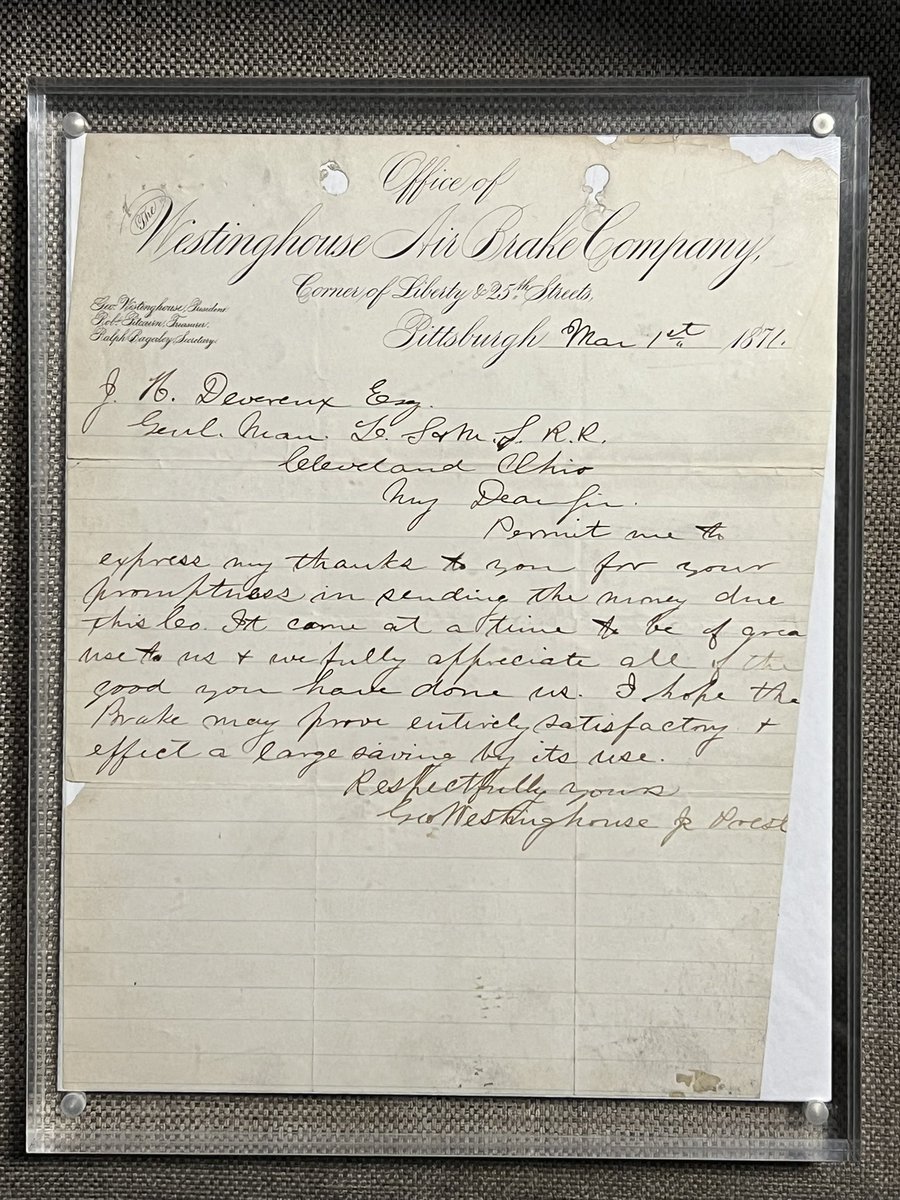 Office of
The Westinghouse Air Brake Company,
Corner of Liberty & 25th Streets,
Geo. Westinghouse, President
Robt. Pitcairn, Treasurer.
Ralph Bagaley, Secretary.
Pittsburgh Mar 1st 1871.
J. H. Devereux Esq.
Genl. Man. L. S & M. S. R. R.
Cleveland Ohio
My Dear Sir.
Permit me to
express my thanks to you for your
promptness in sending the money due
this Co. It came at a time to be of grea
use to us & we fully appreciate all of the
good you have done us. I hope the
Brake may prove entirely satisfactory &
effect a large saving by its use.
Respectfully yours
Geo Westinghouse Jr Prest